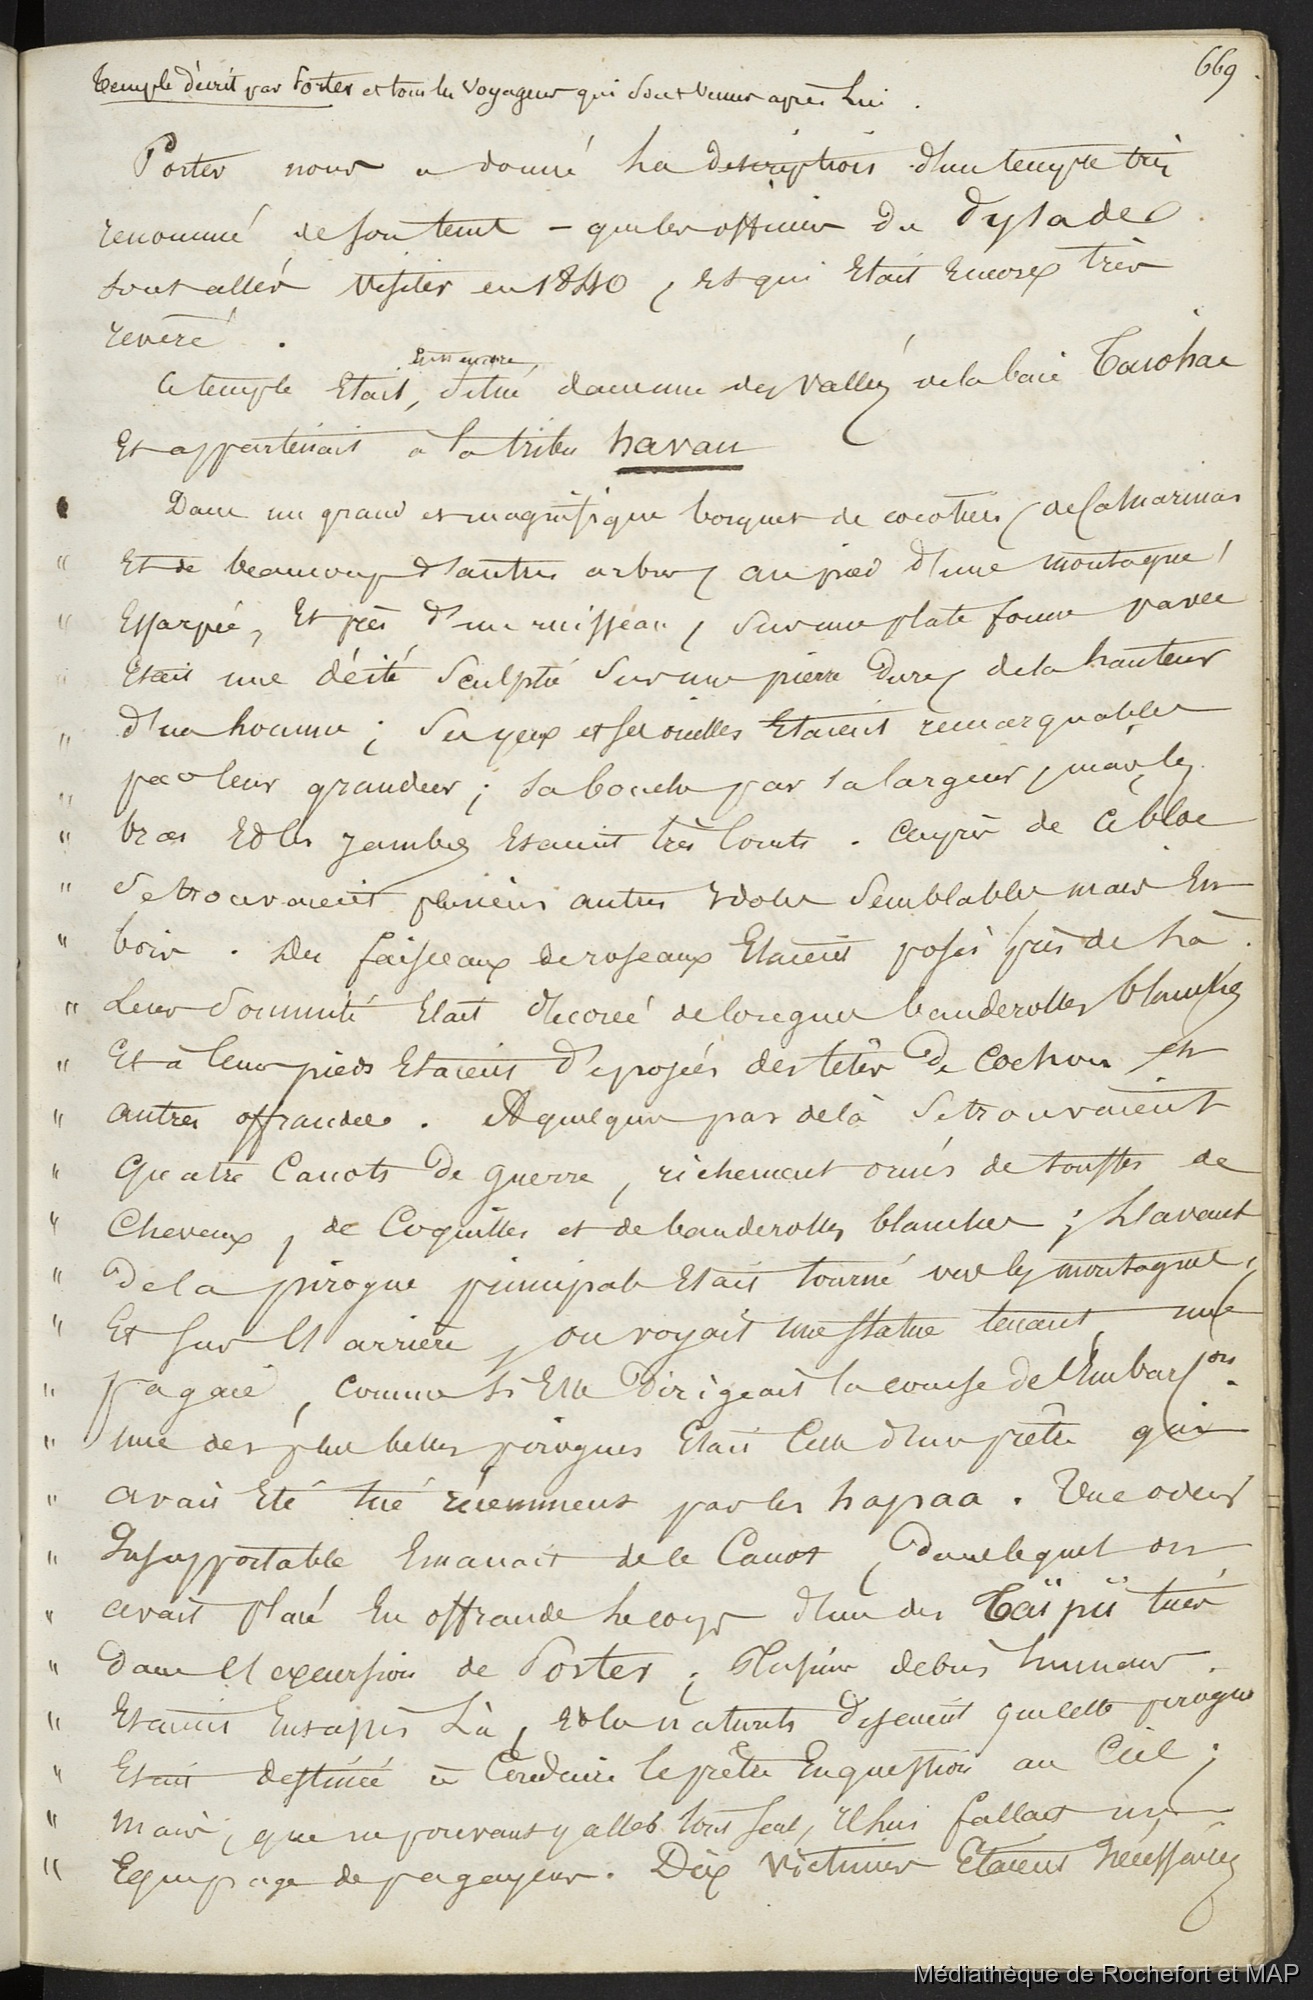 669
Temple décrit par Porter et tous les voyageurs qui sont venus après Lui .
Porter nous a donné La description d'un temple très
renommé de son tems – que les officiers Du Pylades
sont allés visiter en 1840 , Et qui Etait Encore très
révéré .
Ce temple Etait, situé dans une des vallées de la baie Taiohae
Et appartenait à la tribu havau
Dans un grand et magnifique bosquet de cocotiers, de Casuarinas
" Et de beaucoup d'autres arbres, au pied d'une montagne
" Escarpée, Et près d'un ruisseau, sur une plate forme pavée
" Etait une déité sculptée sur une pierre Dure, de la hauteur
" d'un homme ; ses yeux et ses oreilles Etaient remarquables
" par leur grandeur ; sa bouche par sa largeur, mais les
" bras Et les jambes Etaient très courts . auprès de ce bloc
" se trouvaient plusieurs autres idoles semblables mais En
" bois . Des faisceaux de roseaux Etaient posés près de Là .
" Leur sommité Etait décorée de longues banderolles blanches
" Et à leurs pieds Etaient déposées des têtes De Cochons et
" autres offrandes . A quelques pas de là se trouvaient
" Quatre Canots De guerre, richement ornés de touffes de
" Cheveux, de Coquilles et de banderolles blanches ; L'avant
" De la pirogue principale Etait tourné vers les montagnes,
" Et sur L'arrière, on voyait une statue tenant une
" pagaie, comme si Elle Dirigeait la course de l'Embarʳᵒⁿ.
" une des plus belles pirogues Etait Celle d'un prêtre qui
" avait Eté tué récemment par les hapaa . Une odeur
" Insupportable Emanait de ce Canot, Dans lequel on
" avait placé En offrande Le corps d'un des Taïpïi tués
" Dans L'excursion de Porter ; Plusieurs débris humains
" Etaient Entassés Là, Et les naturels Disaient que cette pirogue
" Etait destinée à Conduire le prêtre En question au Ciel ;
" mais, que ne pouvant y aller tout seul, il lui fallait un
" Equipage de pagayeurs . Dix victimes Etaient Nécessaires
Médiathèque de Rochefort et MAP